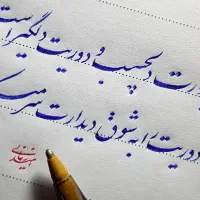 دلچسب و دوریت دلگیر است
دوریت را به شوق دیدارت سر می